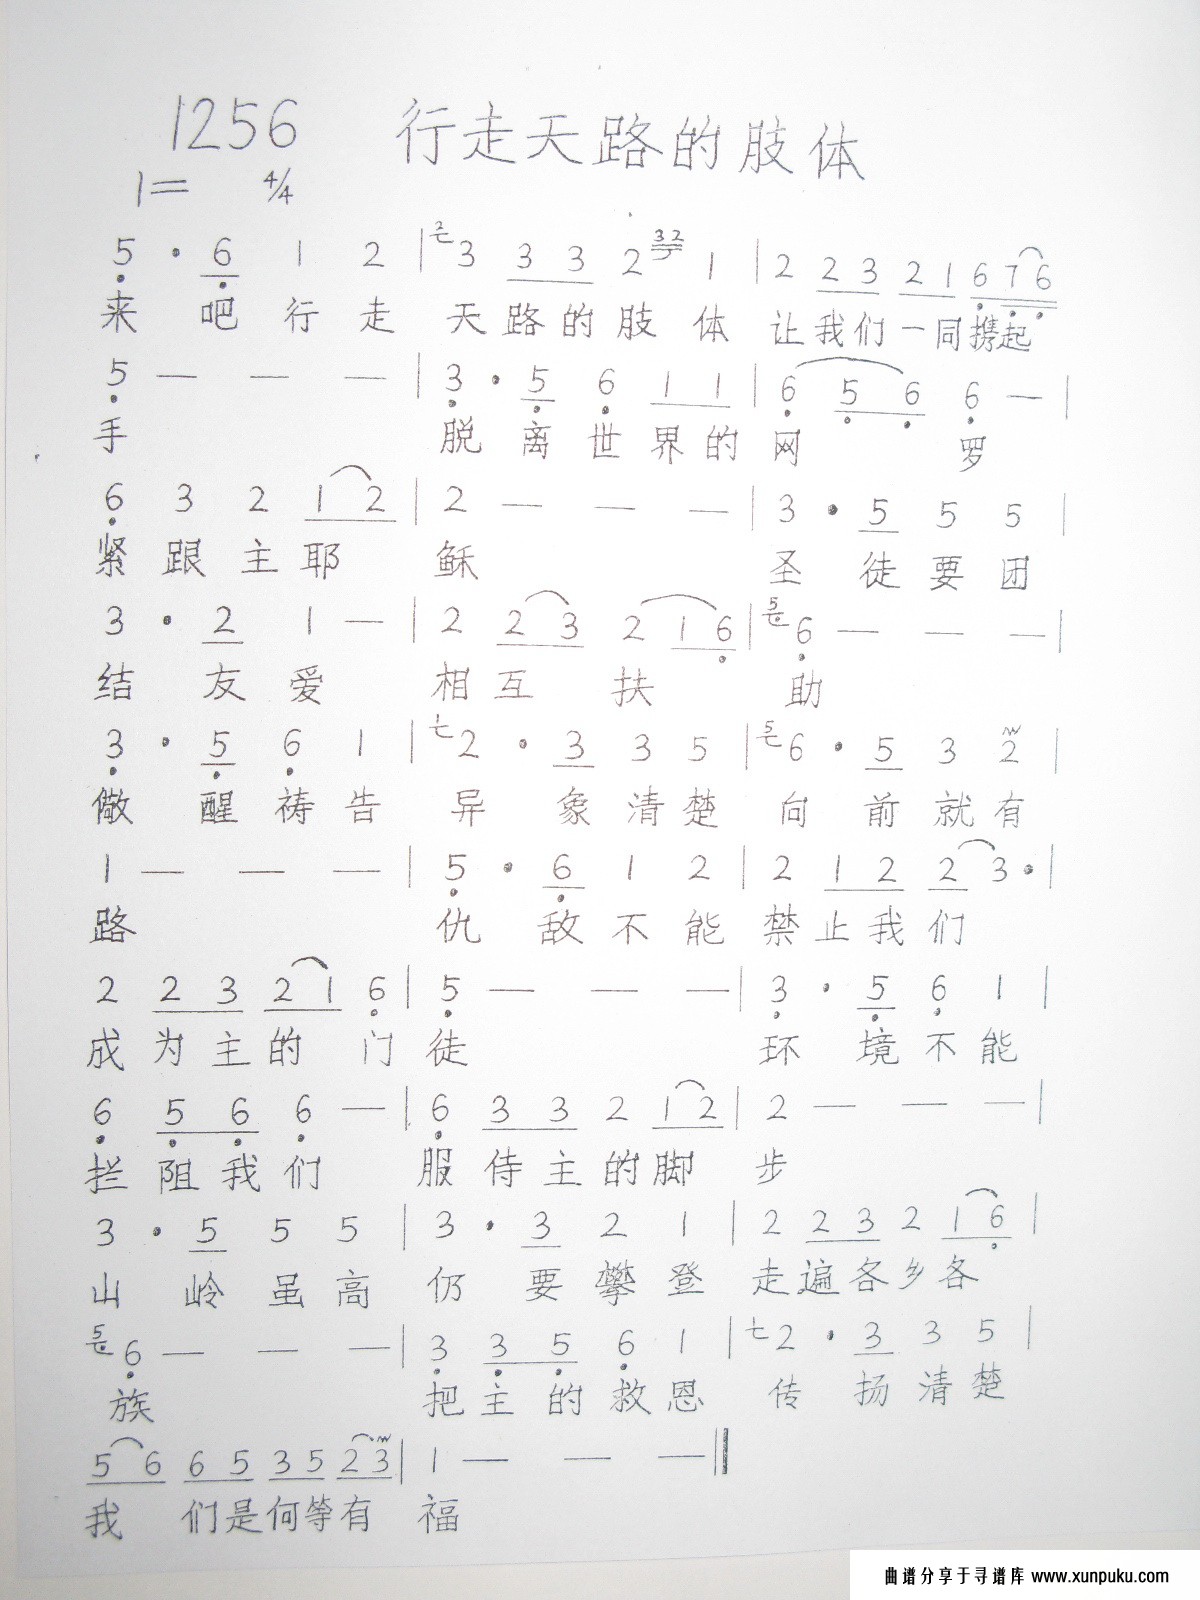 1256 行走天路的肢体
1= 4/4
5 · 6 1 2 | 2 3 3 3 2 32 1 | 2 2 3 2 1 6 7 6
来 吧 行 走 天 路 的 肢 体 让 我 们 一 同 携 起
5 — — — | 3 · 5 6 1 1 | 6 5 6 6 — |
手 脱 离 世 界 的 网 罗
6 3 2 1 2 | 2 — — — | 3 · 5 5 5 |
紧 跟 主 耶 稣 圣 徒 要 团
3 · 2 1 — | 2 2 3 2 1 6 | 5 6 — — — |
结 友 爱 相 互 扶 助
3 · 5 6 1 | 1 2 · 3 3 5 | 5 6 · 5 3 2 |
儆 醒 祷 告 异 象 清 楚 向 前 就 有
1 — — — | 5 · 6 1 2 | 2 1 2 2 3 · |
路 仇 敌 不 能 禁 止 我 们
2 2 3 2 1 6 | 5 — — — | 3 · 5 6 1 |
成 为 主 的 门 徒 环 境 不 能
6 5 6 6 — | 6 3 3 2 1 2 | 2 — — — |
拦 阻 我 们 服 侍 主 的 脚 步
3 · 5 5 5 | 3 · 3 2 1 | 2 2 3 2 1 6 |
山 岭 虽 高 仍 要 攀 登 走 遍 各 乡 各
5 6 — — — | 3 3 5 6 1 | 2 · 3 3 5 |
族 把 主 的 救 恩 传 扬 清 楚
5 6 6 5 3 5 2 3 | 1 — — — ‖
我 们 是 何 等 有 福
曲谱分享于寻谱库 www.xunpuku.com